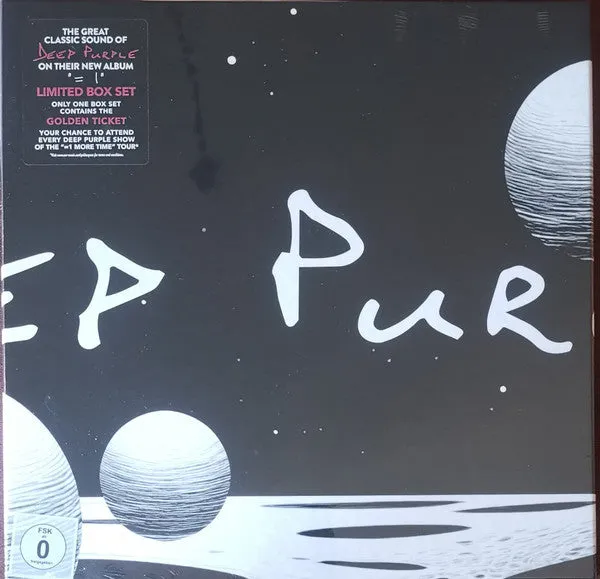 THE GREAT
CLASSIC SOUND OF
DEEP PURPLE
ON THEIR NEW ALBUM
"=1"
LIMITED BOX SET
ONLY ONE BOX SET
CONTAINS THE
GOLDEN TICKET
YOUR CHANCE TO ATTEND
EVERY DEEP PURPLE SHOW
OF THE "=1 MORE TIME" TOUR*
EP PUR
FSK
0